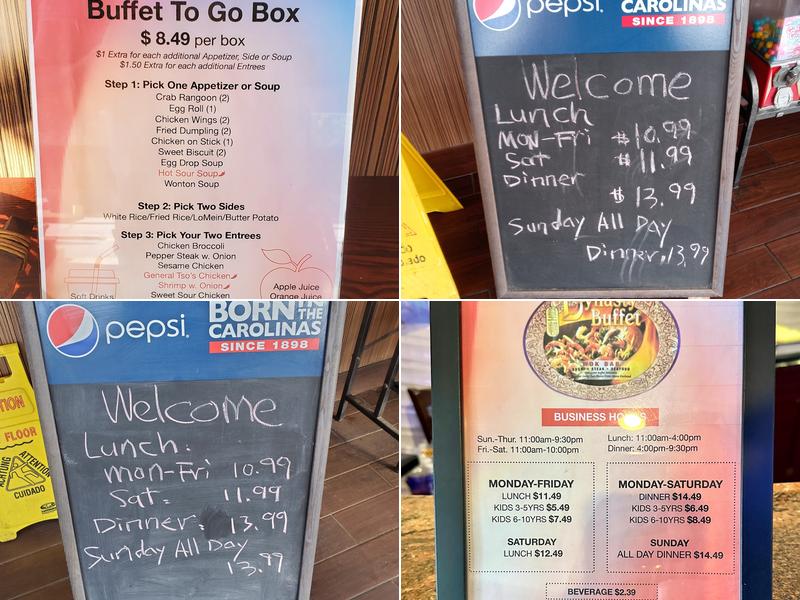 Buffet To Go Box
$ 8.49 per box
$1 Extra for each additional Appetizer, Side or Soup
$1.50 Extra for each additional Entrees
Step 1: Pick One Appetizer or Soup
Crab Rangoon (2)
Egg Roll (1)
Chicken Wings (2)
Fried Dumpling (2)
Chicken on Stick (1)
Sweet Biscuit (2)
Egg Drop Soup
Hot Sour Soup
Wonton Soup
Step 2: Pick Two Sides
White Rice/Fried Rice/LoMein/Butter Potato
Step 3: Pick Your Two Entrees
Chicken Broccoli
Pepper Steak w. Onion
Sesame Chicken
General Tso's Chicken
Shrimp w. Onion
Sweet Sour Chicken
Soft Drinks
Apple Juice
Orange Juice
pepsi.
CAROLINAS
SINCE 1898
Welcome
Lunch
MON-Fri $10.99
Sat $11.99
Dinner
$13.99
Sunday All Day
Dinner 13.99
pepsi.
BORN IN THE
CAROLINAS
SINCE 1898
Welcome
Lunch:
Mon-Fri 10.99
Sat: 11.99
Dinner: 13.99
Sunday All Day
13.99
CAUTION
FLOOR
ACHTUNG
ATTENTION
CUIDADO
Dynasty
Buffet
WOK BAR
SUSHI • STEAK • SEAFOOD
BUSINESS HOURS
Sun.-Thur. 11:00am-9:30pm
Fri.-Sat. 11:00am-10:00pm
Lunch: 11:00am-4:00pm
Dinner: 4:00pm-9:30pm
MONDAY-FRIDAY
LUNCH $11.49
KIDS 3-5YRS $5.49
KIDS 6-10YRS $7.49
SATURDAY
LUNCH $12.49
MONDAY-SATURDAY
DINNER $14.49
KIDS 3-5YRS $6.49
KIDS 6-10YRS $8.49
SUNDAY
ALL DAY DINNER $14.49
BEVERAGE $2.39